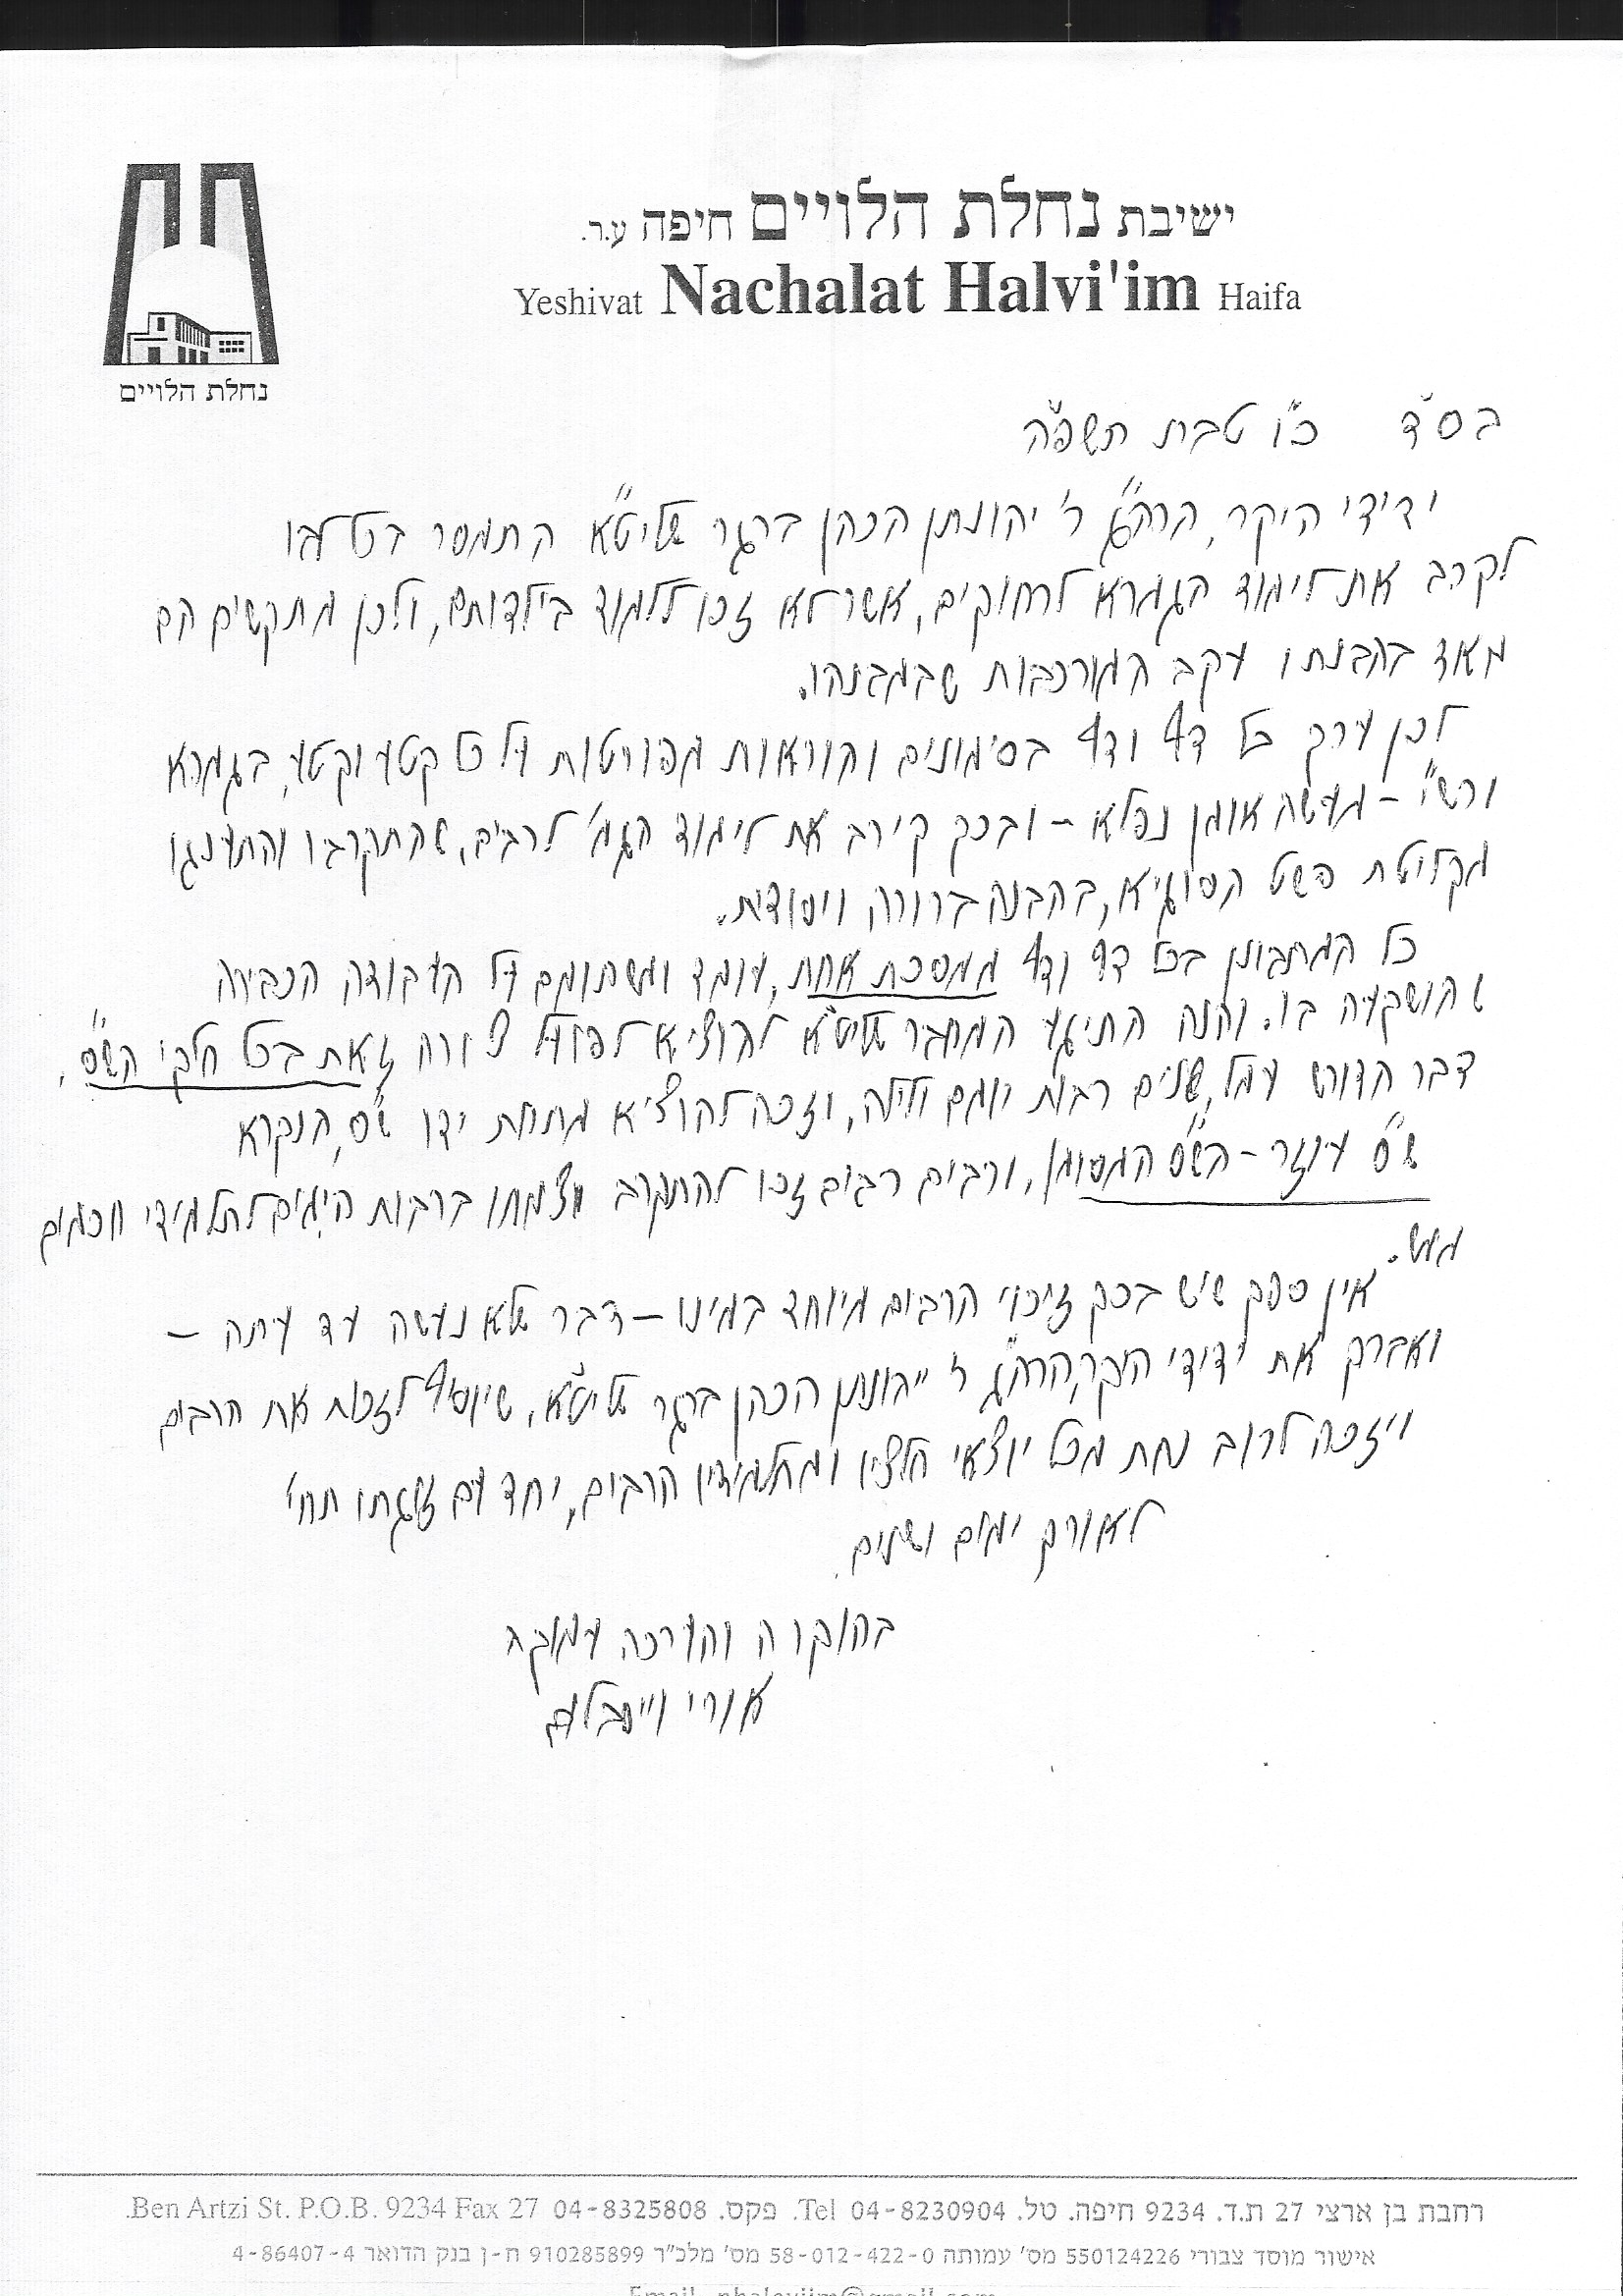 ישיבת נחלת הלויים חיפה ע.ר.
Yeshivat Nachalat Halvi'im Haifa
נחלת הלויים
בס"ד כ"ו טבת תשפ"ה
ידידי היקר, הרה"ג ר' יהונתן הכהן ברגר שליט"א התמסר בכל לבו
לקרב את לימוד הגמרא לרחוקים, אשר לא זכו ללמוד בילדותם, ולכן מתקשים הם
מאוד בהבנתו עקב המורכבות שבמבנהו.
לכן ערך כל דף ודף בסימונים והוראות מפורטות על כל קטע וקטע, בגמרא
ורש"י - מעשה אומן נפלא - ובכך קירב את לימוד הגמ' לרבים, שהתקרבו והתענגו
מקליטת פשט הסוגיא, בהבנה ברורה ויסודית.
כל המתבונן בכל דף ודף ממסכת אחת, עומד ומשתומם על העבודה הכבירה
שהושקעה בו. והנה התיגע המחבר שליט"א להוציא לפועל צורה זאת בכל חלקי הש"ס,
דבר הדורש עמל, שנים רבות יומם ולילה, וזכה להוציא מתחת ידו ש"ס, הנקרא
ש"ס עינזר - הש"ס המסומן, ורבים רבים זכו להתקרב וצמחו ברבות הימים לתלמידי חכמים
ממש.
אין ספק שיש בכך זיכוי הרבים מיוחד במינו - דבר שלא נעשה עד עתה -
ואברך את ידידי היקר, הרה"ג ר' יהונתן הכהן ברגר שליט"א, שיוסיף לזכות את הרבים
ויזכה לרוב נחת מכל יוצאי חלציו ומתלמידיו הרבים, יחד עם זוגתו תחי'
לאורך ימים ושנים.
בהוקרה והערכה עמוקה
אורי וייסבלום
רחבת בן ארצי 27 ת.ד. 9234 חיפה. טל. 04-8230904 Tel. פקס. 04-8325808 Ben Artzi St. P.O.B. 9234 Fax 27.
אישור מוסד צבורי 550124226 מס' עמותה 58-012-422-0 מס' מלכ"ר 910285899 ח-ן בנק הדואר 4-86407-4